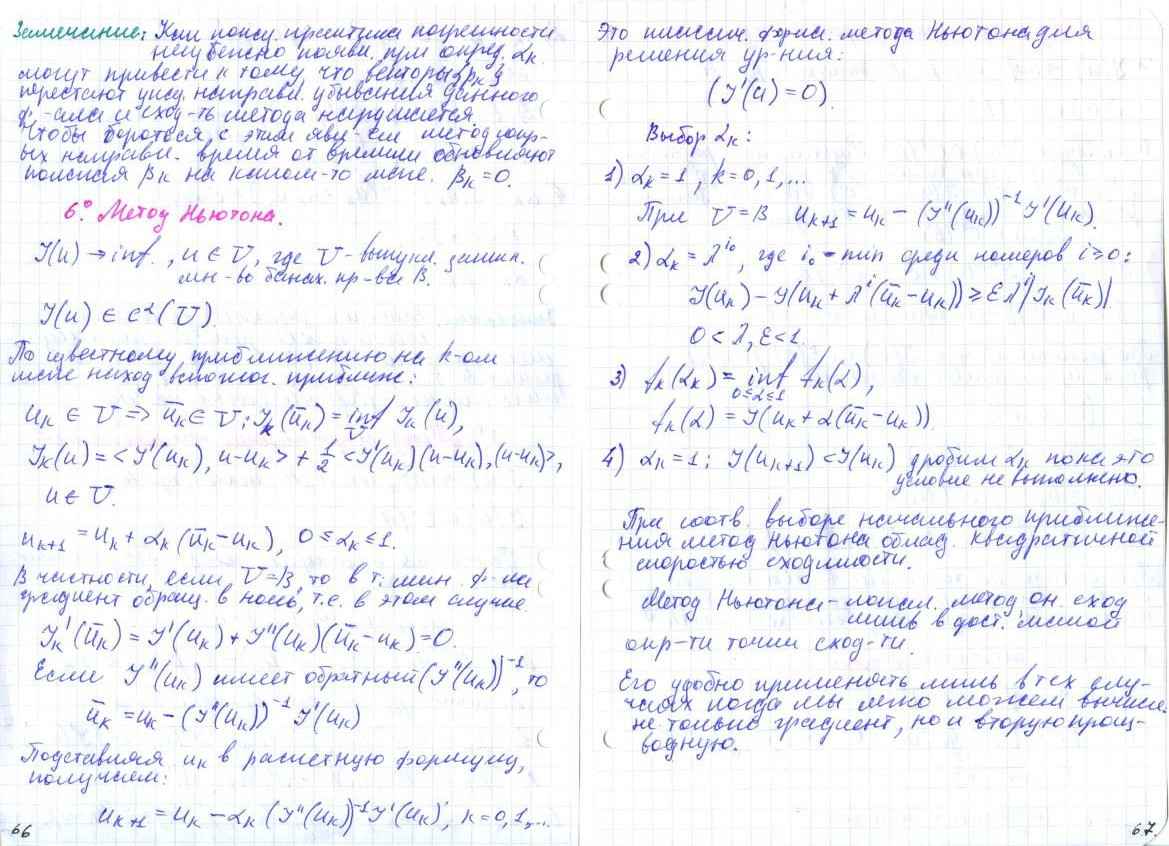 Замечание: Как показ. практика погрешности
неизбежно появл. при опред. αₖ
могут привести к тому, что векторы {pₖ}
перестают указ. направл. убывания данного
ф.-ала и сход-ть метода нарушается.
Чтобы бороться с этим явл-ем метод сопр-
ых направл. время от времени обновляют
полагая βₖ на каком-то шаге. βₖ=0.
6° Метод Ньютона.
J(u) → inf, u ∈ U, где U - выпукл. замкн.
мн-во банах. пр-ва B.
J(u) ∈ C²(U).
По известному приближению на k-ом
шаге наход вспомог. приближ:
uₖ ∈ U => ūₖ ∈ U: Jₖ(ūₖ) = inf Jₖ(u),
U
Jₖ(u) = <J'(uₖ), u-uₖ> + 1/2 <J''(uₖ)(u-uₖ),(u-uₖ)>,
u ∈ U.
uₖ₊₁ = uₖ + αₖ(ūₖ-uₖ), 0 ≤ αₖ ≤ 1.
В частности, если U=B, то в т. мин. ф-ла
градиент обращ. в ноль, т.е. в этом случае
Jₖ'(ūₖ) = J'(uₖ) + J''(uₖ)(ūₖ-uₖ) = 0.
Если J''(uₖ) имеет обратный (J''(uₖ))⁻¹, то
ūₖ = uₖ - (J''(uₖ))⁻¹ J'(uₖ)
Подставляя uₖ в расчетную формулу,
получаем:
uₖ₊₁ = uₖ - αₖ (J''(uₖ))⁻¹ J'(uₖ), k=0,1,...
66
Это классич. форма. метода Ньютона для
решения ур-ния:
(J'(u) = 0).
Выбор αₖ:
1) αₖ = 1, k=0,1,...
При U=B uₖ₊₁ = uₖ - (J''(uₖ))⁻¹ J'(uₖ).
2) αₖ = λ^i₀, где i₀ - min среди номеров i≥0:
J(uₖ) - J(uₖ + λⁱ(ūₖ-uₖ)) ≥ ελⁱ|Jₖ(ūₖ)|
0 < λ, ε < 1.
3) fₖ(αₖ) = inf fₖ(α),
0≤α≤1
fₖ(α) = J(uₖ + α(ūₖ-uₖ))
4) αₖ = 1: J(uₖ₊₁) < J(uₖ) дробим αₖ пока это
условие не выполнено.
При соотв. выборе начального приближе-
ния метод Ньютона облад. квадратичной
скоростью сходимости.
Метод Ньютона - локал. метод, он сход
лишь в дост. малой
окр-ти точки сход-ти.
Его удобно применять лишь в тех слу-
чаях когда мы легко можем вычисл.
не только градиент, но и вторую произ-
водную.
67.